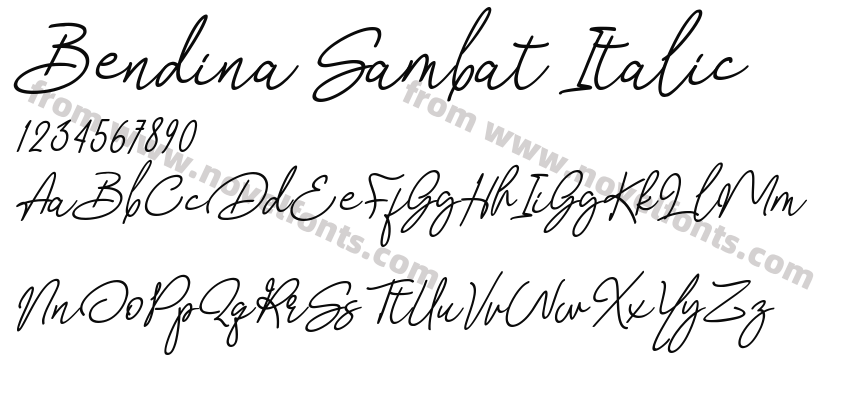 Bendina Sambat Italic
1234567890
AaBbCcDdEeFfGgHhIiGgKkLlMm
NnOoPpQqRrSsTtUuVvWwXxYyZz
from www.novelfonts.com
from www.novelfonts.com